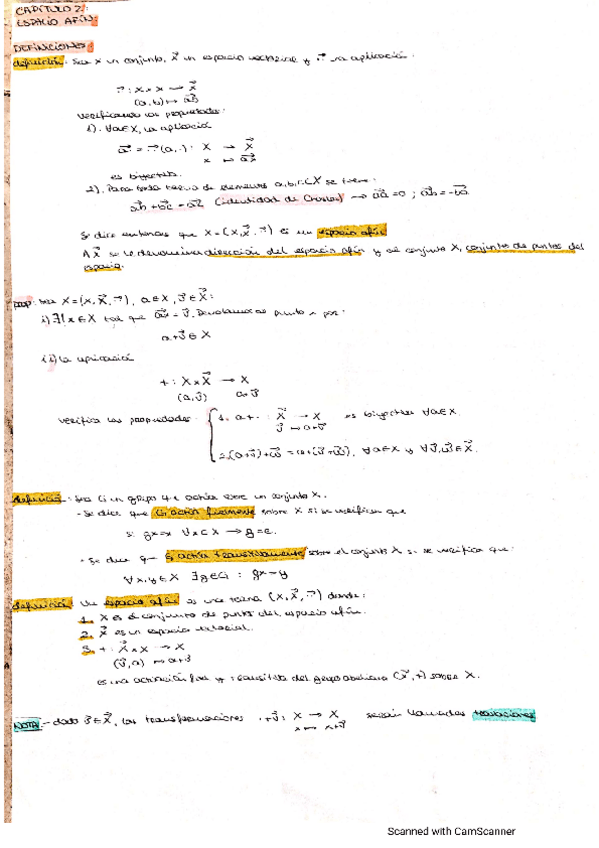 CAPÍTULO 2:
ESPACIO AFÍN
DEFINICIONES:
definición: Sea X un conjunto, X⃗ un espacio vectorial y →: una aplicación
→: X x X → X⃗
(a, b) ↦ ab⃗
verificando las propiedades:
1). ∀a∈X, la aplicación
a⃗ = →(a, ·): X → X⃗
x ↦ ax⃗
es biyectiva.
2). Para toda terna de elementos a,b,c ⊂ X se tiene:
ab⃗ + bc⃗ = ac⃗ (identidad de Chasles) → aa⃗ = 0 ; ab⃗ = -ba⃗
Se dice entonces que X = (X, X⃗, →) es un espacio afín
A X⃗ se le denomina dirección del espacio afín y al conjunto X, conjunto de puntos del
espacio.
prop: sea X = (X, X⃗, →), a∈X, v⃗∈X⃗:
i) ∃! x∈X tal que ax⃗ = v⃗. Denotamos punto x por:
a+v⃗ ∈ X
ii) la aplicación
+ : X x X⃗ → X
(a, v⃗) a+v⃗
verifica las propiedades:
1. a+· : X⃗ → X es biyectiva ∀a∈X.
v⃗ ↦ a+v⃗
2. (a+v⃗)+w⃗ = a+(v⃗+w⃗), ∀a∈X y ∀v⃗,w⃗∈X⃗.
definición: Sea G un grupo que actúa sobre un conjunto X.
- Se dice que G actúa fielmente sobre X si se verifica que
si gx=x ∀x⊂X → g=e.
- Se dice que G actúa transitivamente sobre el conjunto X si se verifica que:
∀x,y∈X ∃g∈G : gx=y
definición: Un espacio afín es una terna (X, X⃗, →) donde:
1. X es el conjunto de puntos del espacio afín.
2. X⃗ es un espacio vectorial.
3. + : X⃗ x X → X
(v⃗, a) ↦ a+v⃗
es una acción fiel y transitiva del grupo abeliano (X⃗, +) sobre X.
NOTA: - dado v⃗∈X⃗, las transformaciones ·+v⃗: X → X serán llamadas traslaciones
x ↦ x+v⃗
Scanned with CamScanner